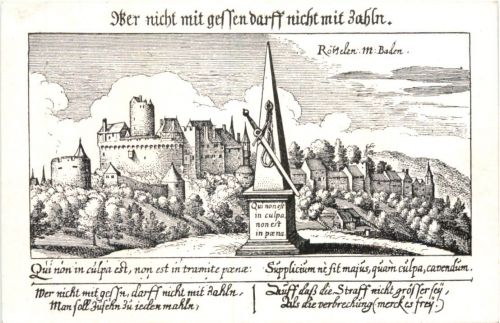 Wer nicht mit gessen darff nicht mit Zahln.
Rötelen. m. Baden.
Qui non est
in culpa,
non est
in pœna
Qui non in culpa est, non est in tramite pœnæ:
Supplicium nè fit majus, quàm culpa, cavendum.
Wer nicht mit gessn, darff nicht mit Zahln,
Man soll Zusehn Zu ieden mahln,
Auff daß die Straff nicht grösser sey,
Als die verbrechung (mercks frey.)